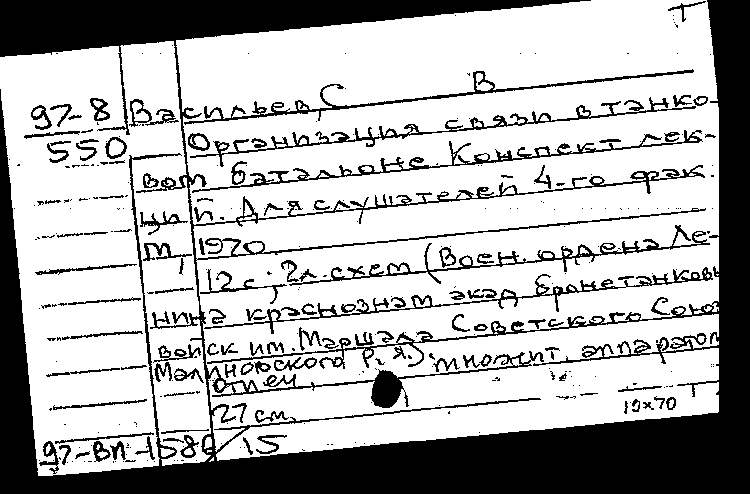 Т
97-8 Васильев, С В
550 Организация связи в танко-
вом батальоне. Конспект лек-
ций. Для слушателей 4-го фак.
М, 1970
12 с; 2 л. схем (Воен. ордена Ле-
нина краснознам. акад бронетанковых
войск им. Маршала Советского Союза
Малиновского Р. Я.); множит. аппаратом
отпеч.
27 см.
97-ВП-1586/15
19x70